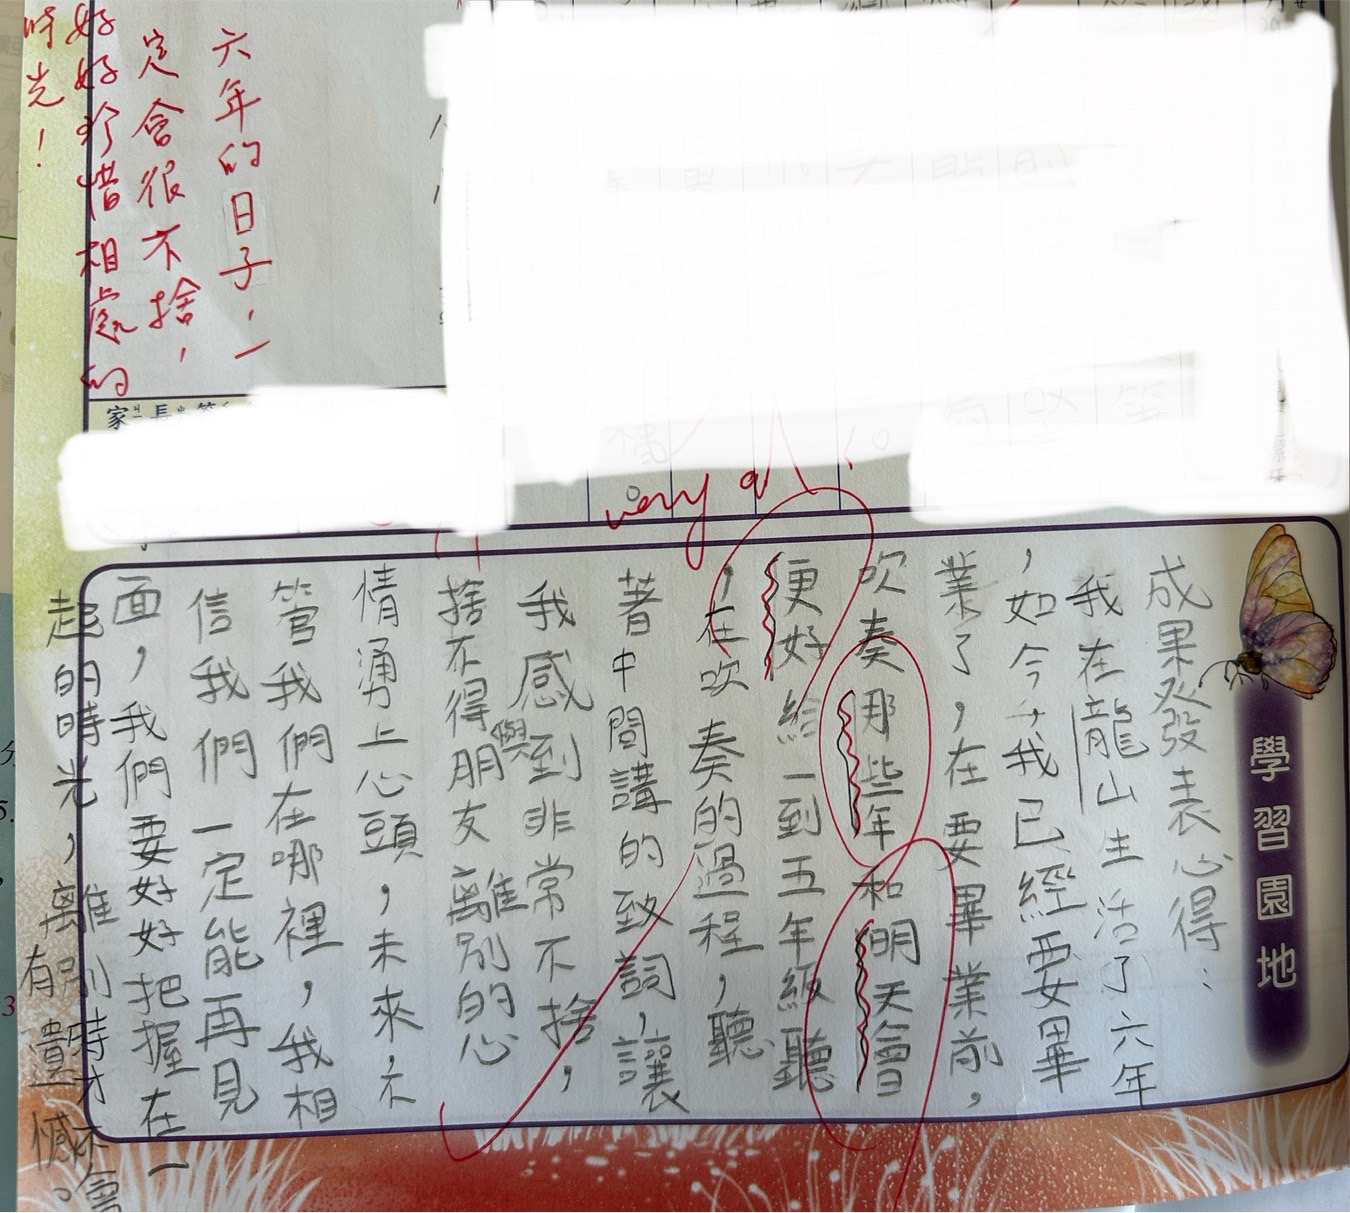 學習園地
成果發表心得：
我在龍山生活了六年
，如今，我已經要畢
業了，在要畢業前，
吹奏那些年和明天會
更好給一到五年級聽
，在吹奏的過程，聽
著中間講的致詞，讓
我感到非常不捨，
捨不得與朋友離別的心
情湧上心頭，未來，不
管我們在哪裡，我相
信我們一定能再見
面，我們要好好把握在一
起的時光，離別時才不會
有遺憾。
very
六年的日子，一
定會很不捨，
好好珍惜相處的
時光！
家長